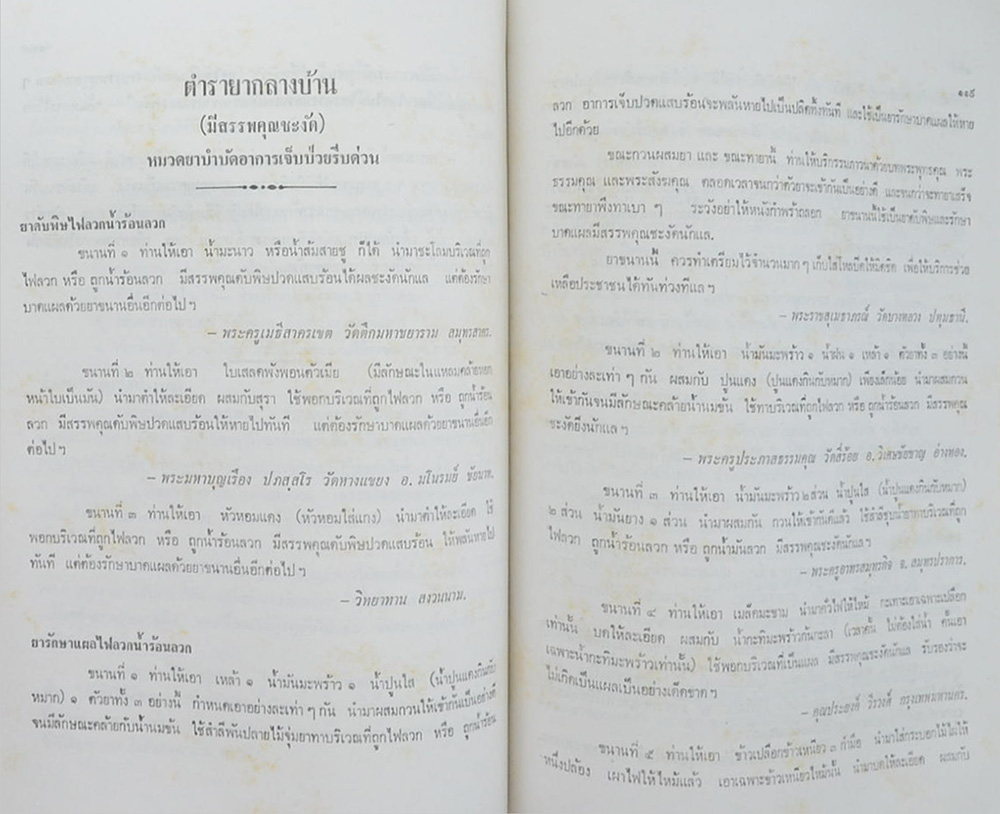 ตำรายากลางบ้าน
(มีสรรพคุณชะงัด)
หมวดยาบำบัดอาการเจ็บป่วยรีบด่วน
ยาดับพิษไฟลวกน้ำร้อนลวก
ขนานที่ ๑ ท่านให้เอา น้ำมะนาว หรือน้ำส้มสายชู ก็ได้ นำมาชะโลมบริเวณที่ถูก
ไฟลวก หรือ ถูกน้ำร้อนลวก มีสรรพคุณดับพิษปวดแสบร้อนได้ผลชะงัดนักแล แต่ต้องรักษา
บาดแผลด้วยยาขนานอื่นอีกต่อไป ฯ
– พระครูเมธีสาครเขต วัดตึกมหาชยาราม สมุทรสาคร.
ขนานที่ ๒ ท่านให้เอา ใบเสลดพังพอนตัวเมีย (มีลักษณะใบแหลมคล้ายหอก
หน้าใบเป็นมัน) นำมาตำให้ละเอียด ผสมกับสุรา ใช้พอกบริเวณที่ถูกไฟลวก หรือ ถูกน้ำร้อน
ลวก มีสรรพคุณดับพิษปวดแสบร้อนให้หายไปทันที แต่ต้องรักษาบาดแผลด้วยยาขนานอื่นอีก
ต่อไป ฯ
– พระมหาบุญเรือง ปภสฺสโร วัดหางแขยง อ. มโนรมย์ ชัยนาท.
ขนานที่ ๓ ท่านให้เอา หัวหอมแดง (หัวหอมใส่แกง) นำมาตำให้ละเอียด ใช้
พอกบริเวณที่ถูกไฟลวก หรือ ถูกน้ำร้อนลวก มีสรรพคุณดับพิษปวดแสบร้อน ให้พลันหายไป
ทันที แต่ต้องรักษาบาดแผลด้วยยาขนานอื่นอีกต่อไป ฯ
– วิทยาทาน สงวนนาม.
ยารักษาแผลไฟลวกน้ำร้อนลวก
ขนานที่ ๑ ท่านให้เอา เหล้า ๑ น้ำมันมะพร้าว ๑ น้ำปูนใส (น้ำปูนแดงกินกับ
หมาก) ๑ ตัวยาทั้ง ๓ อย่างนี้ กำหนดเอาอย่างละเท่า ๆ กัน นำมาผสมกวนให้เข้ากันเป็นอย่างดี
จนมีลักษณะคล้ายกับน้ำนมข้น ใช้สำลีพันปลายไม้จุ่มยาทาบริเวณที่ถูกไฟลวก หรือ ถูกน้ำร้อน
๑๑๙
ลวก อาการเจ็บปวดแสบร้อนจะพลันหายไปเป็นปลิดทิ้งทันที และใช้เป็นยารักษาบาดแผลให้หาย
ไปอีกด้วย
ขณะกวนผสมยา และ ขณะทายานี้ ท่านให้บริกรรมภาวนาด้วยบทพระพุทธคุณ พระ
ธรรมคุณ และพระสังฆคุณ ตลอดเวลาจนกว่าตัวยาจะเข้ากันเป็นอย่างดี และจนกว่าจะทายาเสร็จ
ขณะทายาพึงทาเบา ๆ ระวังอย่าให้หนังกำพร้าถลอก ยาขนานนี้ใช้เป็นยาดับพิษและรักษา
บาดแผลมีสรรพคุณชะงัดนักแล.
ยาขนานนี้ ควรทำเตรียมไว้จำนวนมาก ๆ เก็บใส่โหลปิดให้มิดชิด เพื่อให้บริการช่วย
เหลือประชาชนได้ทันท่วงทีแล ฯ
– พระราชสุเมธาภรณ์ วัดบางหลวง ปทุมธานี.
ขนานที่ ๒ ท่านให้เอา น้ำมันมะพร้าว ๑ น้ำฝน ๑ เหล้า ๑ ตัวยาทั้ง ๓ อย่างนี้
เอาอย่างละเท่า ๆ กัน ผสมกับ ปูนแดง (ปูนแดงกินกับหมาก) เพียงเล็กน้อย นำมาผสมกวน
ให้เข้ากันจนมีลักษณะคล้ายน้ำนมข้น ใช้ทาบริเวณที่ถูกไฟลวก หรือ ถูกน้ำร้อนลวก มีสรรพคุณ
ชะงัดยิ่งนักแล ฯ
– พระครูประภาสธรรมคุณ วัดสี่ร้อย อ. วิเศษชัยชาญ อ่างทอง.
ขนานที่ ๓ ท่านให้เอา น้ำมันมะพร้าว ๒ ส่วน น้ำปูนใส (น้ำปูนแดงกินกับหมาก)
๒ ส่วน น้ำมันยาง ๑ ส่วน นำมาผสมกัน กวนให้เข้ากันดีแล้ว ใช้สำลีชุบน้ำยาทาบริเวณที่ถูก
ไฟลวก ถูกน้ำร้อนลวก หรือ ถูกน้ำมันลวก มีสรรพคุณชะงัดนักแล ฯ
– พระครูอาทรสมุทรกิจ จ. สมุทรปราการ.
ขนานที่ ๔ ท่านให้เอา เมล็ดมะขาม นำมาคั่วไฟให้ไหม้ กะเทาะเอาเฉพาะเปลือก
เท่านั้น บดให้ละเอียด ผสมกับ น้ำกะทิมะพร้าวก้นกะลา (เวลาคั้น ไม่ต้องใส่น้ำ คั้นเอา
เฉพาะน้ำกะทิมะพร้าวเท่านั้น) ใช้พอกบริเวณที่เป็นแผล มีสรรพคุณชะงัดนักแล รับรองว่าจะ
ไม่เกิดเป็นแผลเป็นอย่างเด็ดขาด ฯ
– คุณประยงค์ วีรวงศ์ กรุงเทพมหานคร.
ขนานที่ ๕ ท่านให้เอา ข้าวเปลือกข้าวเหนียว ๓ กำมือ นำมาใส่กระบอกไม้ไผ่ให้
หนึ่งปล้อง เผาไฟให้ไหม้แล้ว เอาเฉพาะข้าวเหนียวไหม้นั้น นำมาบดให้ละเอียด ผสมกับ